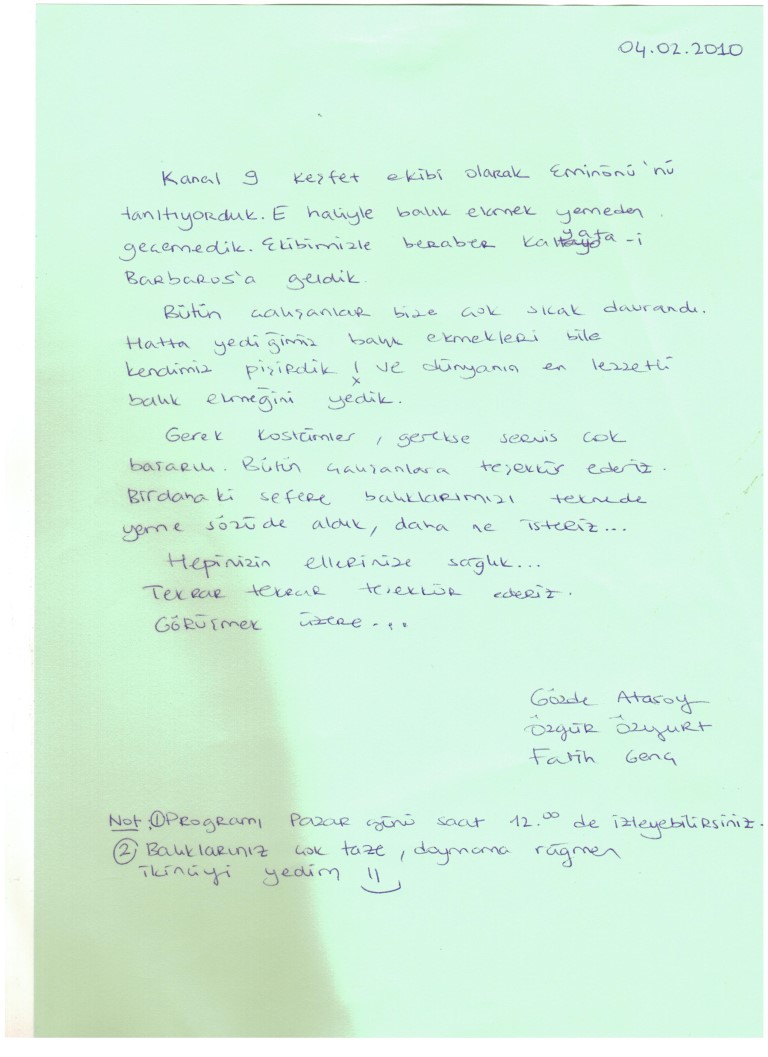 04.02.2010
Kanal 9 keşfet ekibi olarak Eminönü'nü
tanıtıyorduk. E haliyle balık ekmek yemeden
geçemedik. Ekibimizle beraber Kalyata-i
Barbaros'a geldik.
Bütün çalışanlar bize çok sıcak davrandı.
Hatta yediğimiz balık ekmekleri bile
kendimiz pişirdik! ve dünyanın en lezzetli
balık ekmeğini yedik.
Gerek kostümler, gerekse servis çok
başarılı. Bütün çalışanlara teşekkür ederiz.
Birdahaki sefere balıklarımızı teknede
yeme sözü de aldık, daha ne isteriz...
Hepinizin ellerinize sağlık...
Tekrar tekrar teşekkür ederiz.
Görüşmek üzere...
Gözde Atasoy
Özgür Özyurt
Fatih Genç
Not: ① Programı Pazar günü saat 12.00 de izleyebilirsiniz.
② Balıklarınız çok taze, doymama rağmen
ikinciyi yedim !!